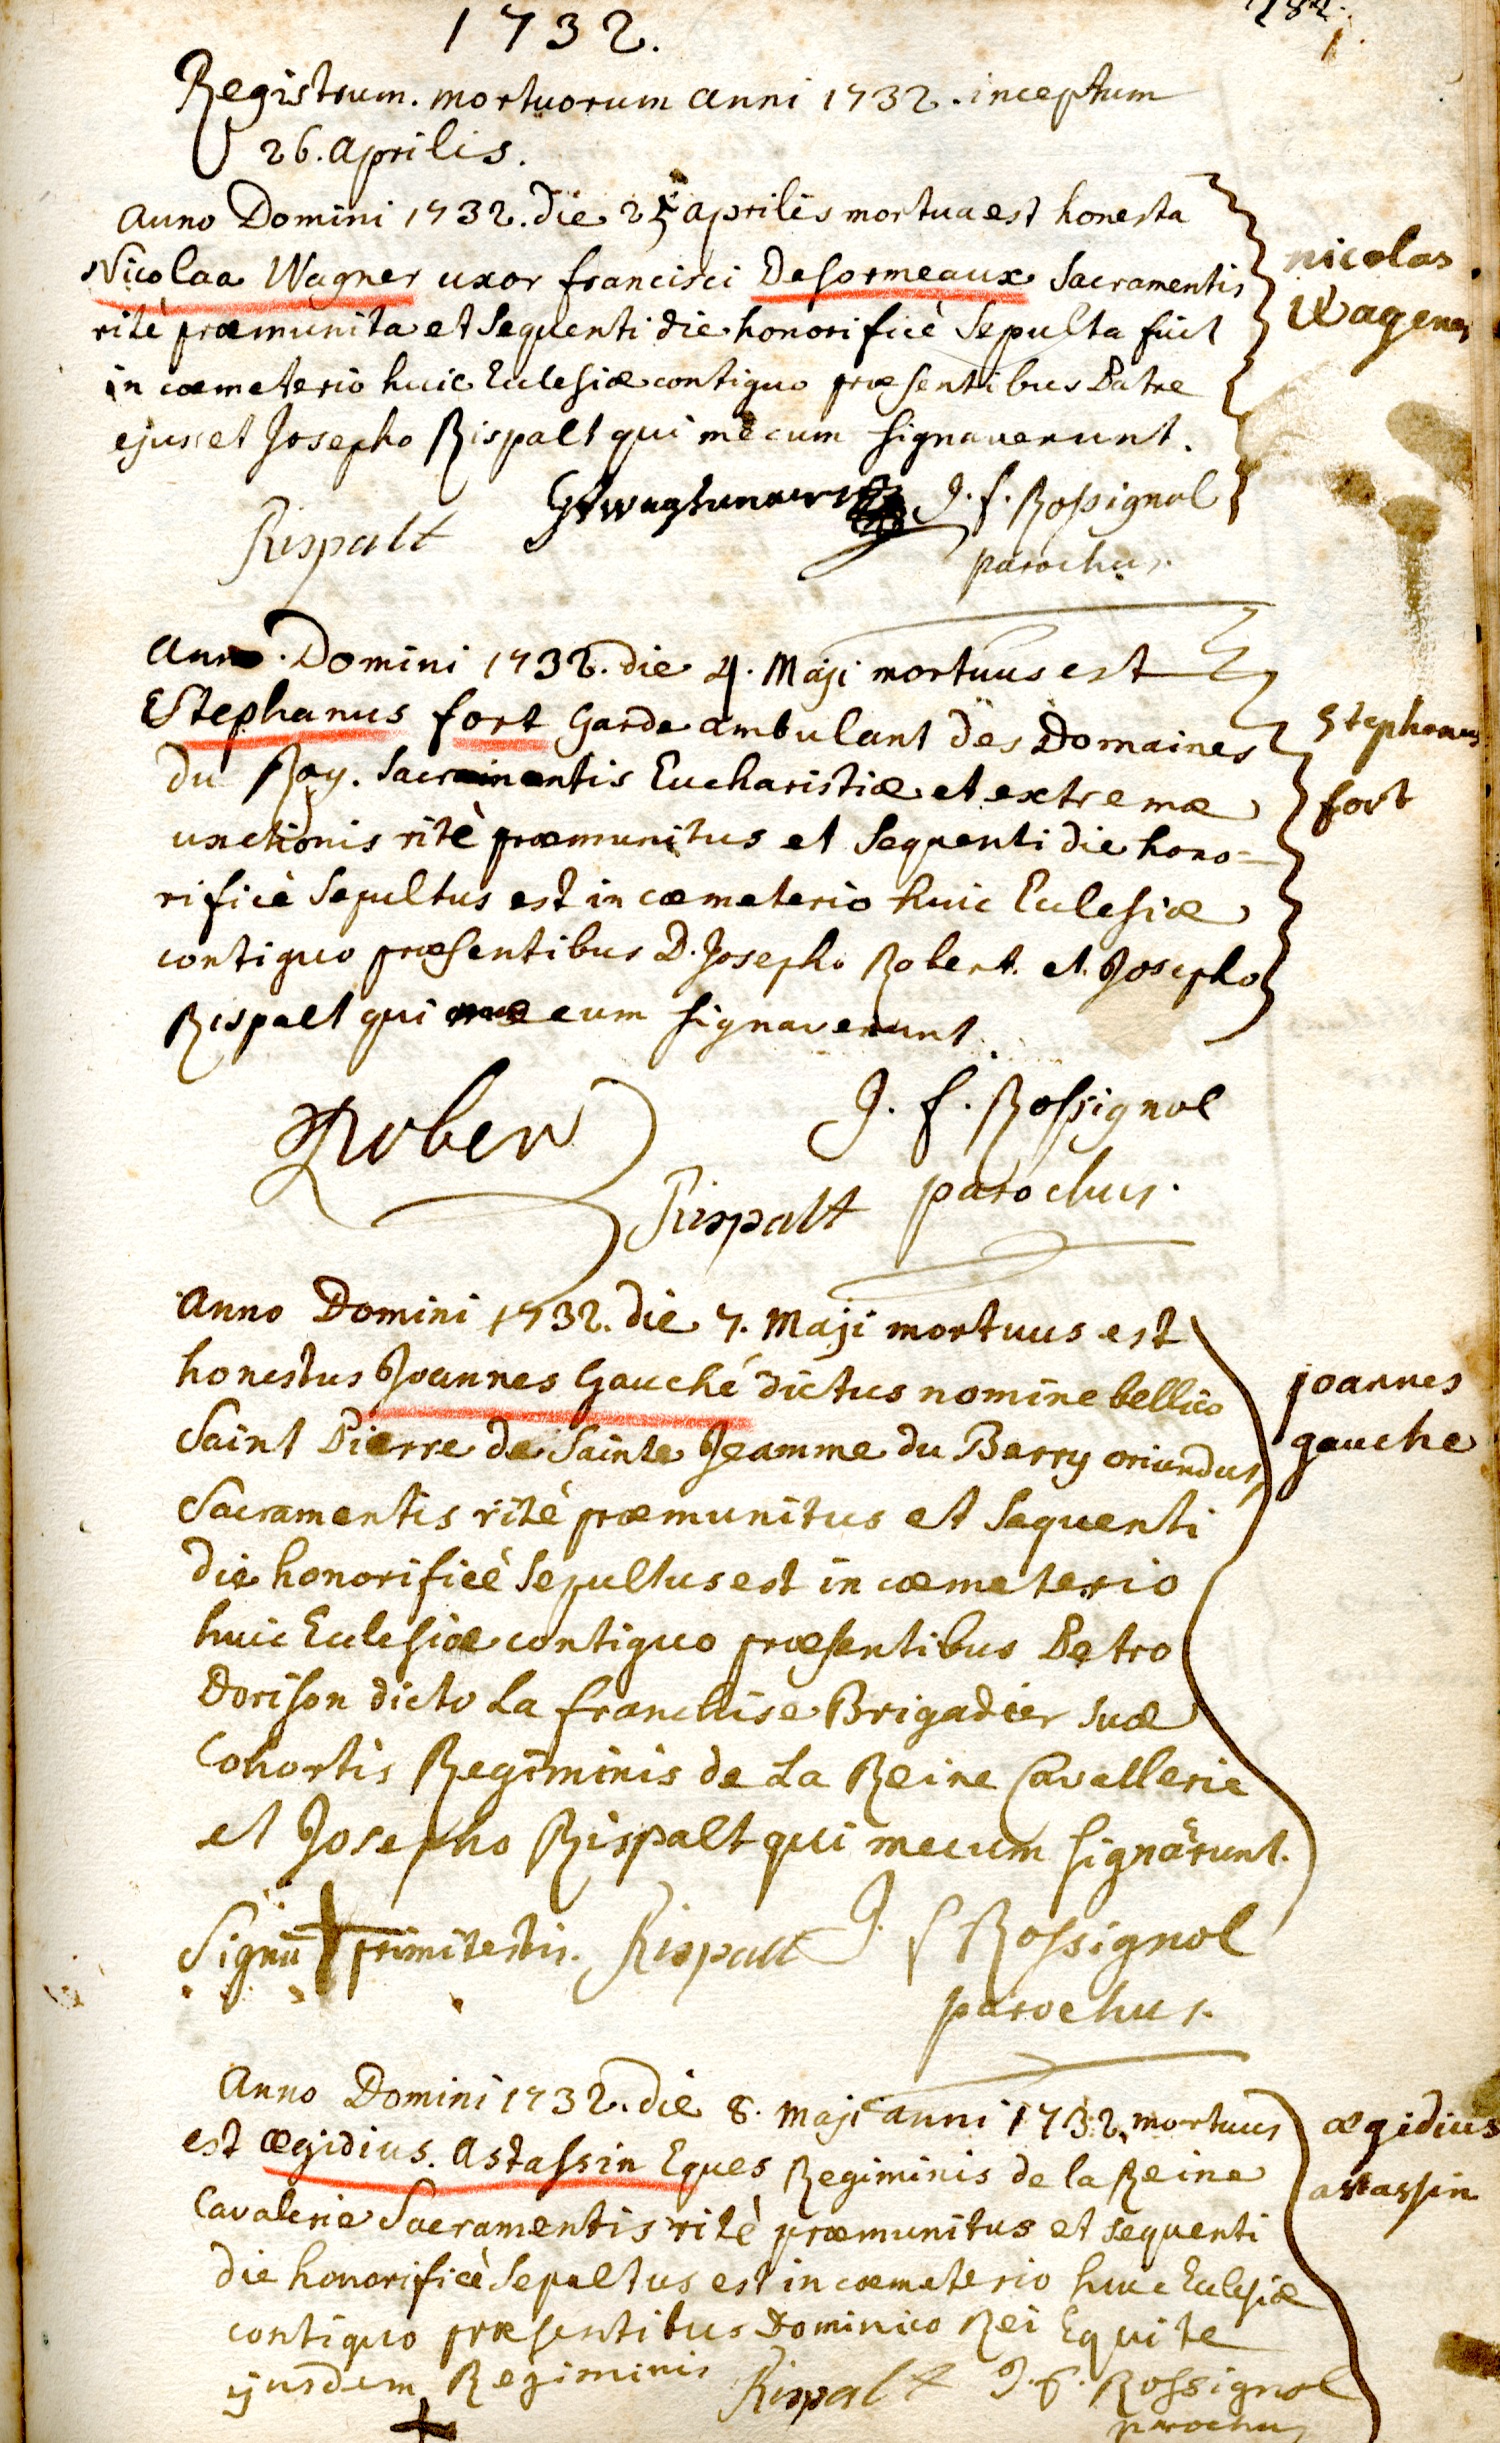 1732.
Registrum. mortuorum anni 1732. inceptum
26. aprilis.
anno Domini 1732. die 25 aprilis mortua est honesta
Nicolaa Wagner uxor francisci Desormeaux Sacramentis
ritè præmunita et Sequenti die honorificè Sepulta fuit
in cœmeterio huic Ecclesiæ contiguo præsentibus Patre
ejus et Josepho Rispalt qui mecum signaverunt.
nicolas
Wagener
Rispalt J. f. Rossignol
parochus.
anno. Domini 1732. die 4. Maji mortuus est
Estephanus fort Garde ambulant des Domaines
du Roy. Sacramentis Eucharistiæ et extremæ
unctionis ritè præmunitus et Sequenti die hono=
rificè Sepultus est in cœmeterio huic Ecclesiæ
contiguo præsentibus D. Josepho Robert. et. Josepho
Rispalt qui mecum signaverunt.
Stephanus
fort
Rober J. f. Rossignol
Rispalt parochus.
Anno Domini 1732. die 7. Maji mortuus est
honestus Joannes Gauché dictus nomine bellico
Saint Pierre de Sainte Jeamme du Berry oriundus
Sacramentis ritè præmunitus et Sequenti
die honorificè Sepultus est in cœmeterio
huic Ecclesiæ contiguo præsentibus Petro
Dorison dicto La franchise Brigadier suæ
Cohortis Regiminis de La Reine Cavallerie
et Josepho Rispalt qui mecum signârunt.
joannes
gauche
Signū primi testis. Rispalt J. f Rossignol
parochus.
Anno Domini 1732. die 8. maji anni 1732. mortuus
est ægidius. Astassin Eques Regiminis de la Reine
Cavalerie Sacramentis ritè præmunitus et sequenti
die honorificè Sepultus est in cœmeterio huic Ecclesiæ
contiguo præsentibus Dominico Rei Equite
ejusdem Regiminis Rispalt J. f. Rossignol
parochus
ægidius
astassin